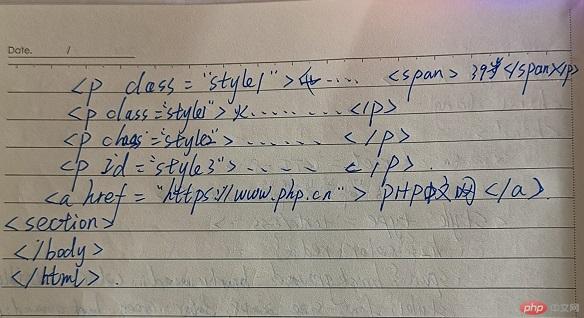 Date. /
<p class="style1"> ..... <span> 39 </span></p>
<p class="style1"> ........ </p>
<p class="style2"> ...... </p>
<p Id="style3"> ..... </p>
<a href="https://www.php.cn"> PHP中文网 </a>
<section>
</body>
</html>
php 中文网